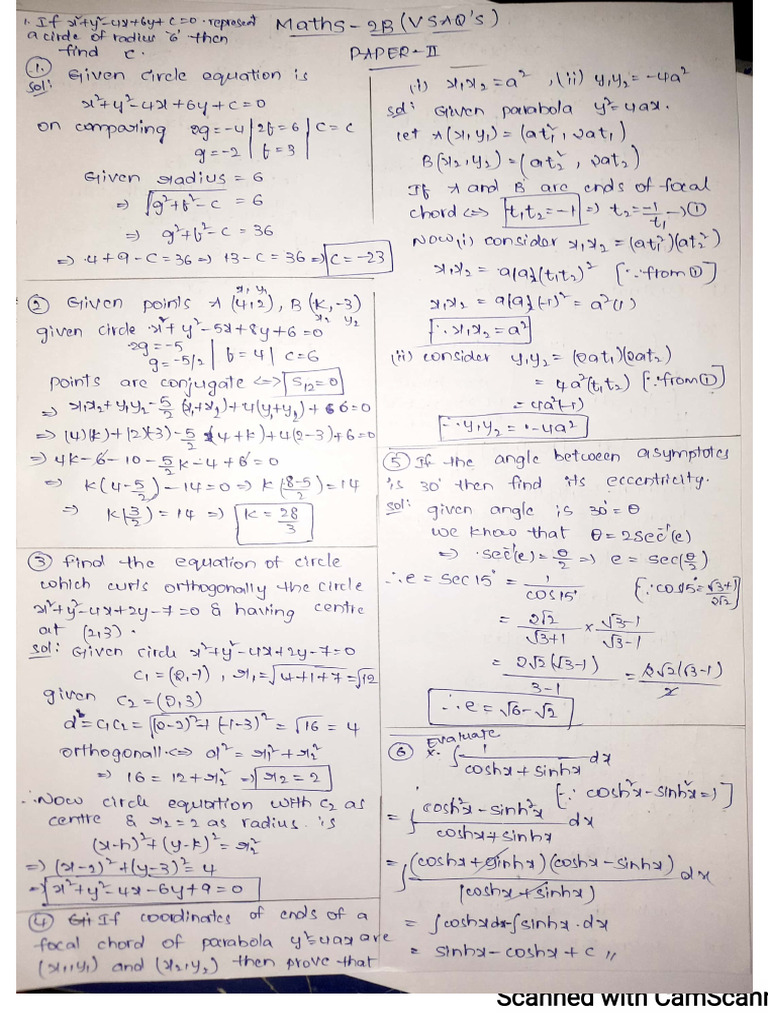 1. If x²+y²-4x+6y+c=0 represent
a circle of radius '6' then
find c.
Maths-2B (VSAQ's)
PAPER-II
① Given circle equation is
sol:
x²+y²-4x+6y+c=0
on comparing 2g=-4 | 2f=6 | c=c
g=-2 | f=3 |
Given radius = 6
⇒ √g²+f²-c = 6
⇒ g²+f²-c = 36
⇒ 4+9-c=36 ⇒ 13-c=36 ⇒ c=-23
② Given points A(4,2), B(k,-3)
x₁ y₁ x₂ y₂
given circle x²+y²-5x+8y+6=0
2g=-5
g=-5/2 | f=4 | c=6
points are conjugate ⇔ S₁₂=0
⇒ x₁x₂+y₁y₂-5/2(x₁+x₂)+4(y₁+y₂)+6=0
⇒ (4)(k)+(2)(-3)-5/2(4+k)+4(2-3)+6=0
⇒ 4k-6-10-5/2k-4+6=0
⇒ k(4-5/2)-14=0 ⇒ k(8-5/2)=14
⇒ k(3/2)=14 ⇒ k=28/3
③ find the equation of circle
which cuts orthogonally the circle
x²+y²-4x+2y-7=0 & having centre
at (2,3).
sol: Given circle x²+y²-4x+2y-7=0
C₁=(2,-1), r₁=√4+1+7=√12
given C₂=(2,3)
d=C₁C₂=√(2-2)²+(-1-3)²=√16=4
orthogonall ⇔ d²=r₁²+r₂²
⇒ 16=12+r₂² ⇒ r₂=2
∴ Now circle equation with C₂ as
centre & r₂=2 as radius is
(x-h)²+(y-k)²=r₂²
⇒ (x-2)²+(y-3)²=4
⇒ x²+y²-4x-6y+9=0
④ If coordinates of ends of a
focal chord of parabola y²=4ax are
(x₁,y₁) and (x₂,y₂) then prove that
(i) x₁x₂=a², (ii) y₁y₂=-4a²
sol: Given parabola y²=4ax.
let A(x₁y₁)=(at₁², 2at₁)
B(x₂,y₂)=(at₂², 2at₂)
If A and B are ends of focal
chord ⇔ t₁t₂=-1 ⇒ t₂=-1/t₁ →①
Now(i) consider x₁x₂=(at₁²)(at₂²)
x₁x₂=a(a)(t₁t₂)² [∵ from ①]
x₁x₂=a(a)(-1)²=a²(1)
∴ x₁x₂=a²
(ii) consider y₁y₂=(2at₁)(2at₂)
=4a²(t₁t₂) [∵ from ①]
=4a²(-1)
∴ y₁y₂=-4a²
⑤ If the angle between asymptotes
is 30° then find its eccentricity.
sol: given angle is 30°=θ
we know that θ=2sec⁻¹(e)
⇒ sec⁻¹(e)=θ/2 ⇒ e=sec(θ/2)
∴ e=sec15°=1/cos15° [∵ cos15°=√3+1/2√2]
=2√2/√3+1 × √3-1/√3-1
=2√2(√3-1)/3-1=2√2(√3-1)/2
∴ e=√6-√2
⑥ Evaluate
∫1/coshx+sinhx dx
[∵ cosh²x-sinh²x=1]
=∫cosh²x-sinh²x/coshx+sinhx dx
=∫(coshx+sinhx)(coshx-sinhx)/(coshx+sinhx) dx
=∫coshxdx-∫sinhx.dx
=sinhx-coshx+c //
Scanned with CamScann